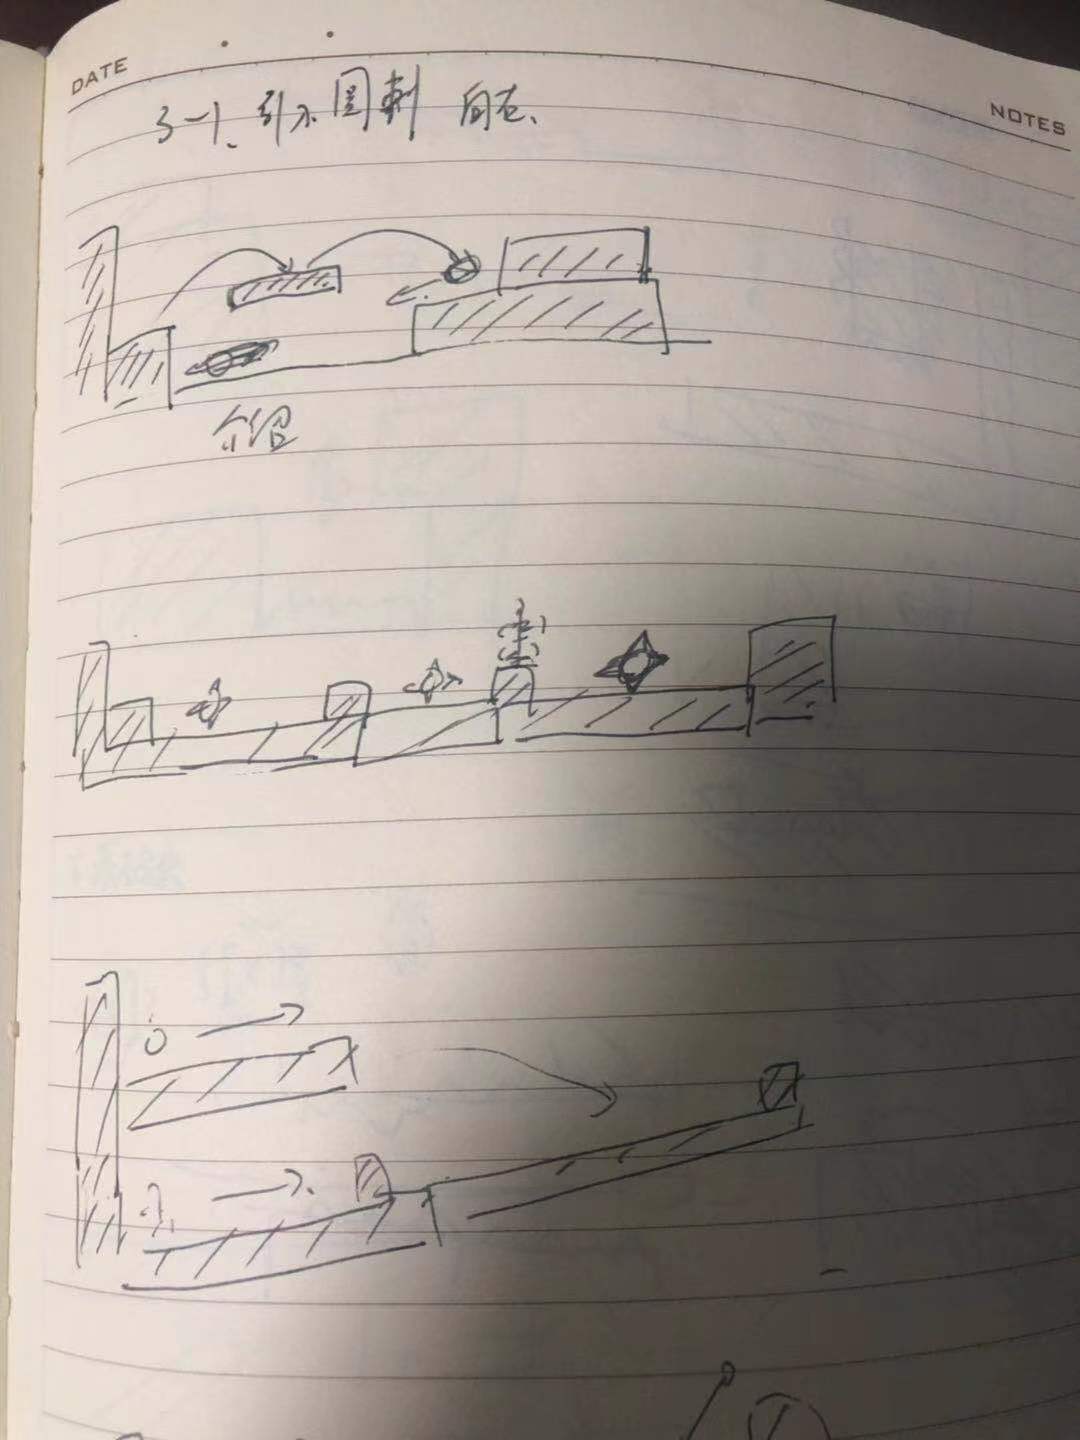 DATE
NOTES
3-1、引入圆刺
介绍